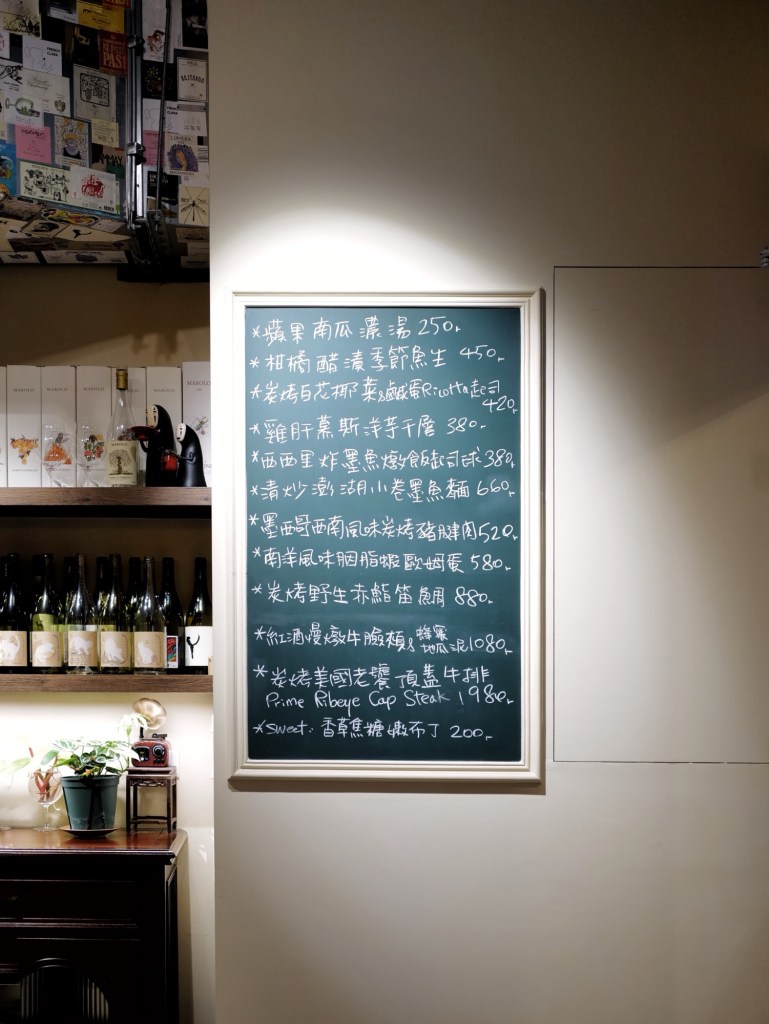 *蘋果南瓜濃湯 250.-
*柑橘醋漬季節魚生 450.-
*炭烤白花椰菜&鹹蛋Ricotta起司
420.-
*雞肝慕斯洋芋千層 380.-
*西西里炸墨魚燉飯起司球 380.-
*清炒澎湖小卷墨魚麵 660.-
*墨西哥西南風味炭烤豬腱肉 520.-
*南洋風味胭脂蝦歐姆蛋 580.-
*炭烤野生赤鮨笛鯛 880.-
*紅酒慢燉牛臉頰&蜂蜜地瓜泥 1080.-
*炭烤美國老饕頂蓋牛排
Prime Ribeye Cap Steak 1980.-
*Sweet: 香草焦糖嫩布丁 200.-
MAROLO
MAROLO
MAROLO